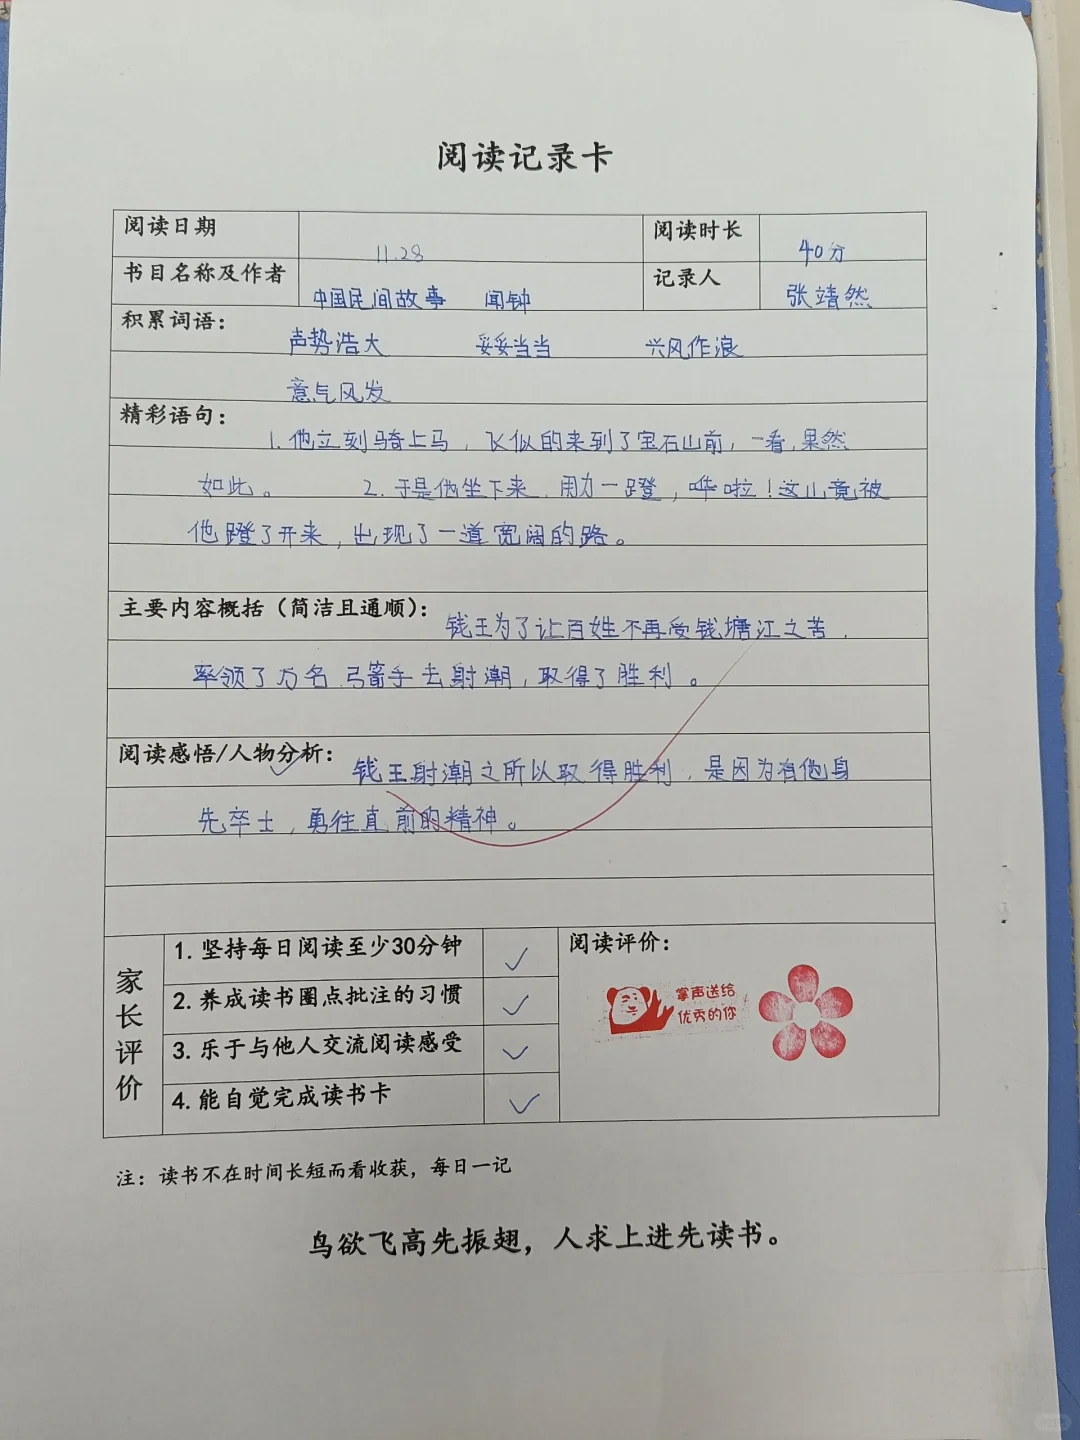 阅读记录卡
阅读日期 11.28 阅读时长 40分
书目名称及作者 中国民间故事 闻钟 记录人 张靖然
积累词语： 声势浩大 妥妥当当 兴风作浪
意气风发
精彩语句： 1.他立刻骑上马，飞似的来到了宝石山前，一看，果然
如此。 2.于是他坐下来，用力一蹬，哗啦！这山竟被
他蹬了开来，出现了一道宽阔的路。
主要内容概括（简洁且通顺）： 钱王为了让百姓不再受钱塘江之苦，
率领了万名弓箭手去射潮，取得了胜利。
阅读感悟/人物分析： 钱王射潮之所以取得胜利，是因为有他身
先卒士，勇往直前的精神。
家长评价
1.坚持每日阅读至少30分钟 ✓
2.养成读书圈点批注的习惯 ✓
3.乐于与他人交流阅读感受 ✓
4.能自觉完成读书卡 ✓
阅读评价：
掌声送给
优秀的你
注：读书不在时间长短而看收获，每日一记
鸟欲飞高先振翅，人求上进先读书。